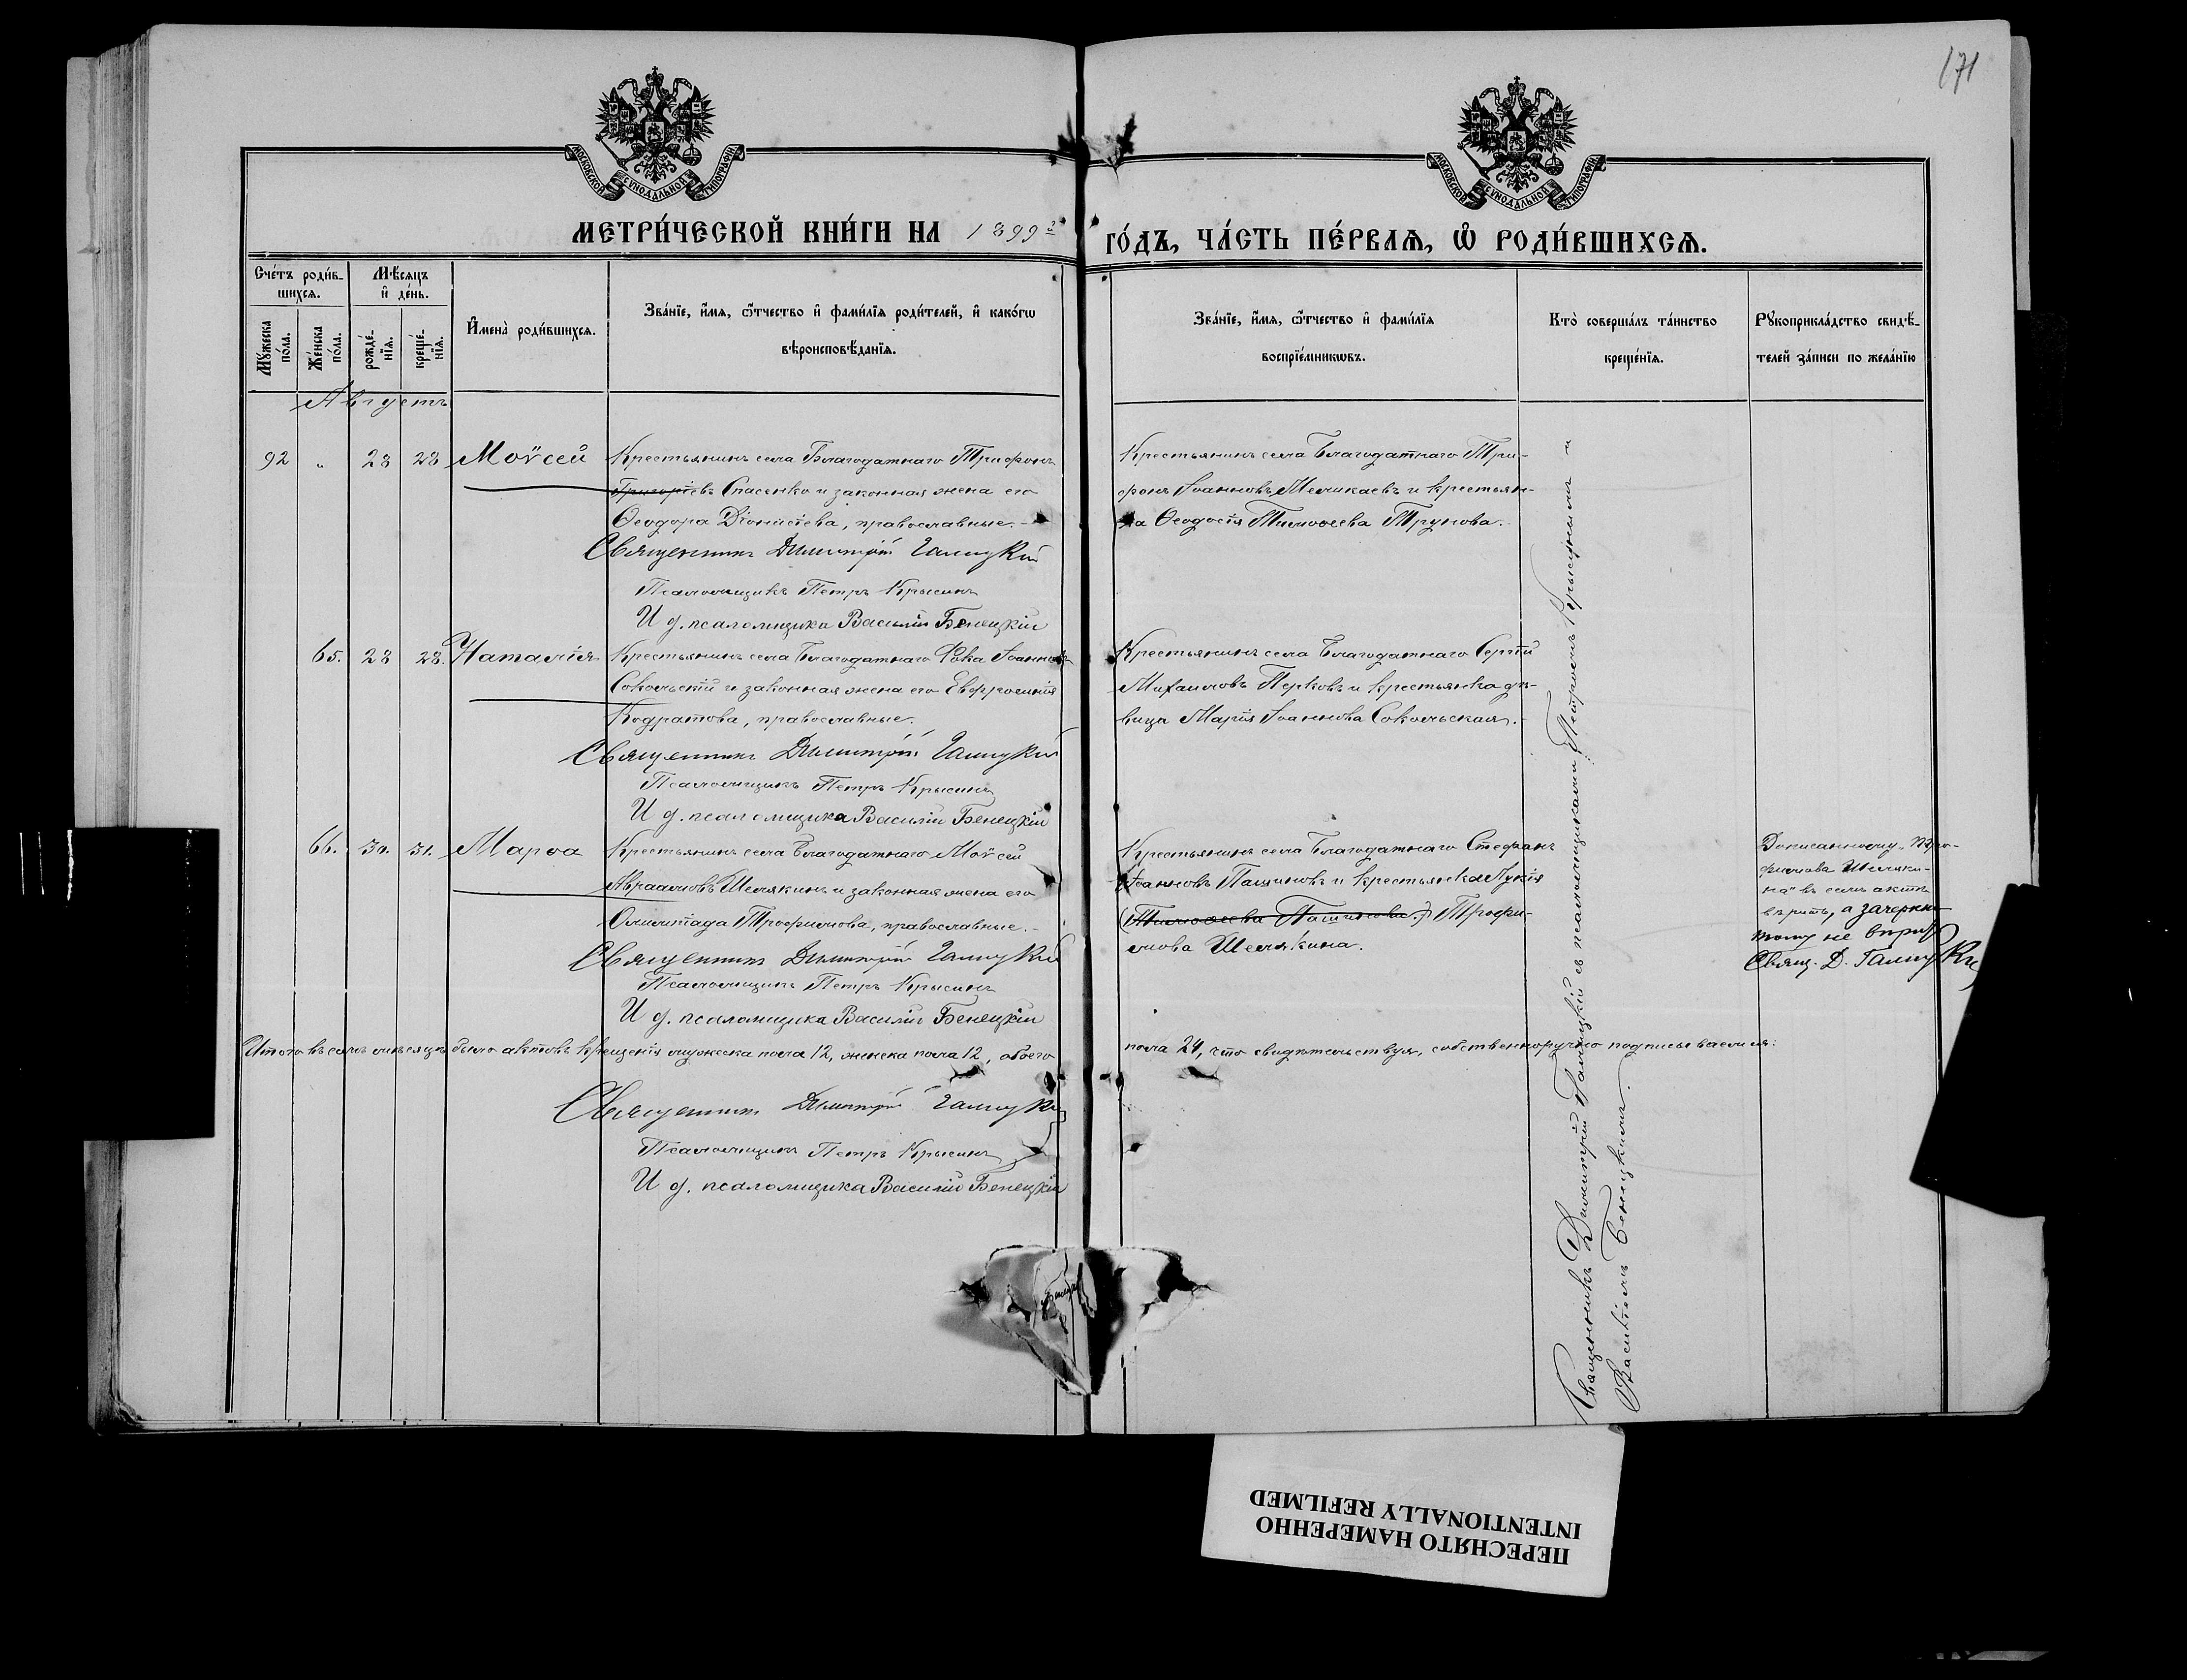 171
МОСКОВСКОЙ СѴНОДАЛЬНОЙ ТИПОГРАФІИ
МОСКОВСКОЙ СѴНОДАЛЬНОЙ ТИПОГРАФІИ
МЕТРИ́ЧЕСКОЙ КНИ́ГИ НА 1899 й
ГО́ДЪ, ЧА́СТЬ ПЕ́РВАѦ, Ѡ РОДИ́ВШИХСѦ.
Сче́тъ роди́вшихсѧ.
Мѣ́сяцъ и҆ де́нь.
Мꙋ́жеска по́ла.
Же́нска по́ла.
рожде́нїѧ.
креще́нїѧ.
И҆мена̀ роди́вшихсѧ.
Зва́нїе, и҆́мѧ, ѻ҆́тчество и҆ фами́лїѧ роди́телей, и҆ како́гѡ
вѣроисповѣ́данїѧ.
Зва́нїе, и҆́мѧ, ѻ҆́тчество и҆ фами́лїѧ
воспрїе́мникѡвъ.
Кто̀ соверша́лъ та́инство
креще́нїѧ.
Рꙋкоприкла́дство свидѣ́-
телей за́писи по жела́нїю
Августъ
92 " 28 28 Моѵсей Крестьянинъ села Благодатнаго Трифонъ
Григоріевъ Спасенко и законная жена его
Ѳеодора Діонисіева, православные.
Священникъ Димитрій Галицкій
Псаломщикъ Петръ Крысинъ
И д. псаломщика Василій Бенецкій
Крестьянинъ села Благодатнаго Три-
фонъ Іоанновъ Мешкаевъ и крестьян-
ка Ѳеодосія Тимоѳеева Трунова.
65. 28 28. Наталія Крестьянинъ села Благодатнаго Фока Іоанновъ
Сокольскій и законная жена его Евфросинія
Кодратова, православные.
Священникъ Димитрій Галицкій
Псаломщикъ Петръ Крысинъ
И д. псаломщика Василій Бенецкій
Крестьянинъ села Благодатнаго Сергій
Михаиловъ Перковъ и крестьянка дѣ-
вица Марія Іоаннова Сокольская.
66. 30. 31. Марѳа Крестьянинъ села Благодатнаго Моѵсей
Авраамовъ Шемякинъ и законная жена его
Олимпіада Трофимова, православные.
Священникъ Димитрій Галицкій
Псаломщикъ Петръ Крысинъ
И д. псаломщика Василій Бенецкій
Крестьянинъ села Благодатнаго Стефанъ
Іоанновъ Пашиновъ и крестьянка Лукія
(Тимоѳеева Пашинова.) Трофи-
мова Шемякина.
Дописанному "Тро-
фимова Шемяки-
на" въ семъ актѣ
вѣрить, а зачеркну-
тому не вѣрить
Свящ. Д. Галицкій
Итого въ семъ мѣсяцѣ было актовъ крещенія мужеска пола 12, женска пола 12, обоего
пола 24, что свидѣтельствуя, собственноручно подписываемся:
Священникъ Димитрій Галицкій
Псаломщикъ Петръ Крысинъ
И д. псаломщика Василій Бенецкій
Священникъ Димитрій Галицкій съ псаломщиками Петромъ Крысинымъ и
Василіемъ Бенецкимъ.
ПЕРЕСНЯТО НАМЕРЕННО
INTENTIONALLY REFILMED